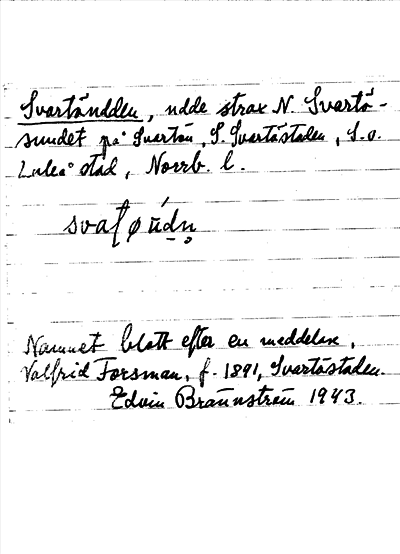 Svartöudden, udde strax N. Svartö-
sundet på Svartön, S. Svartöstaden, S.o.
Luleå stad, Norrb. l.
svaʈøúdn̥
Namnet blott efter en meddelare,
Valfrid Forsman, f. 1891, Svartöstaden.
Edvin Brännström 1943.